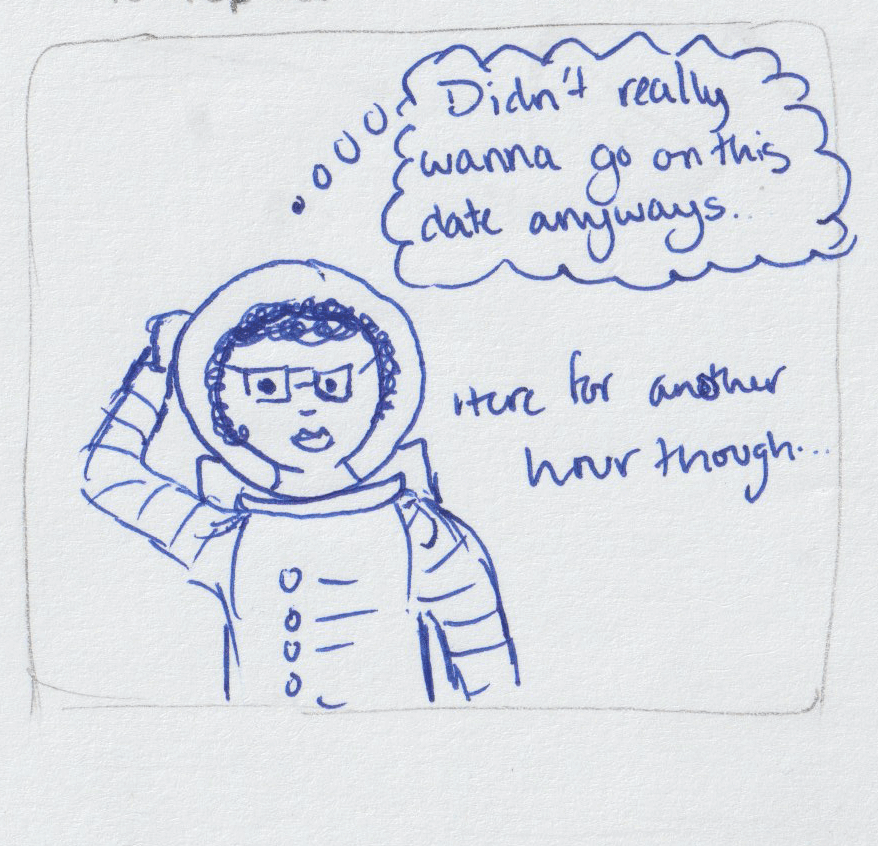 Didn't really
wanna go on this
date anyways..
Here for another
hour though...